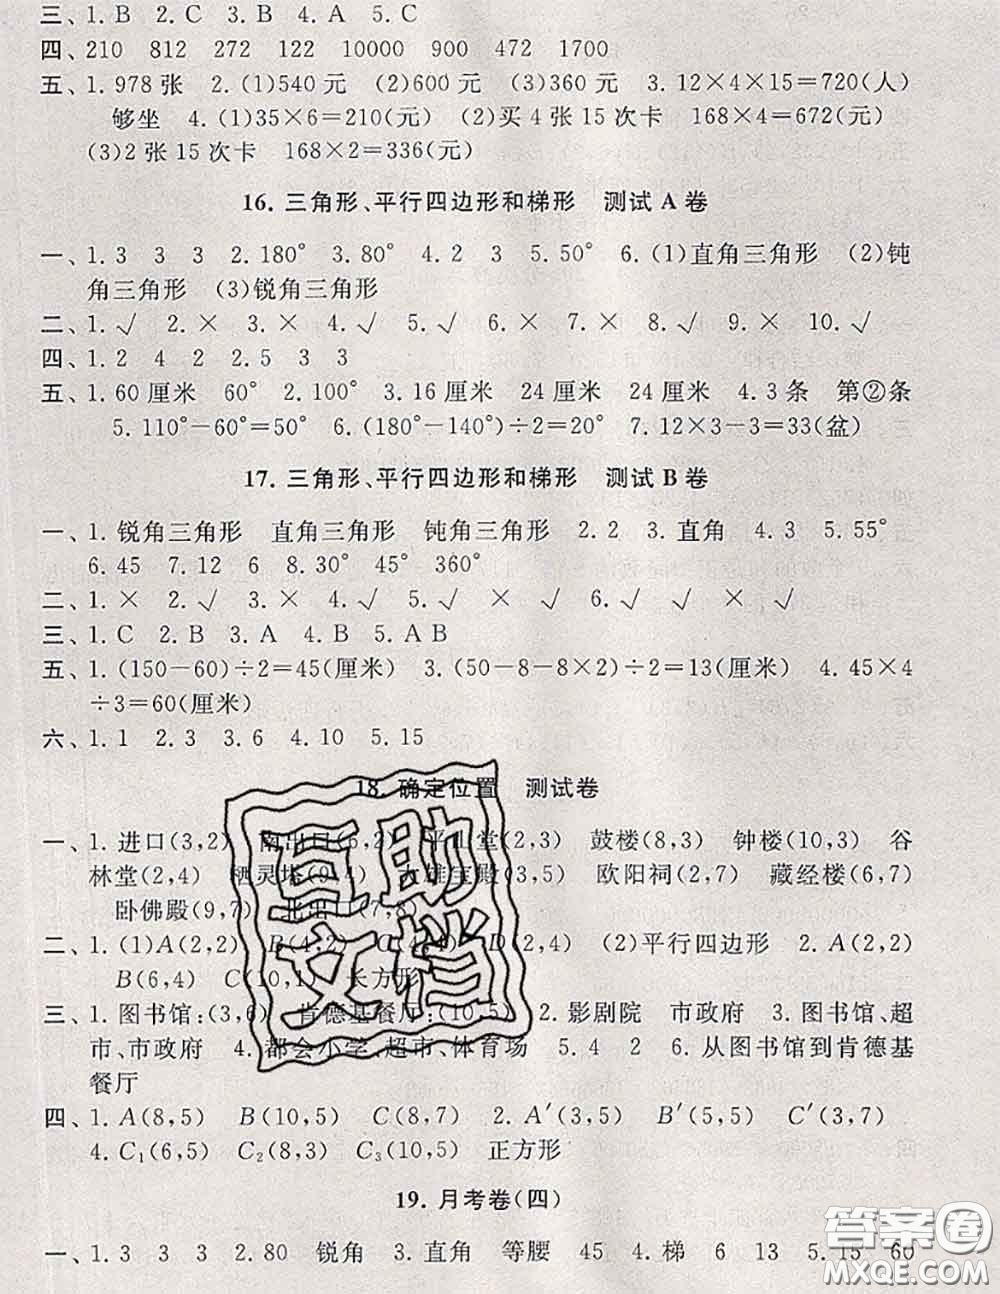 三、1. B 2. C 3. B 4. A 5. C
四、210 812 272 122 10000 900 472 1700
五、1. 978 张 2. (1)540 元 (2)600 元 (3)360 元 3. 12×4×15=720(人)
够坐 4. (1)35×6=210(元) (2)买 4 张 15 次卡 168×4=672(元)
(3)2 张 15 次卡 168×2=336(元)
16. 三角形、平行四边形和梯形 测试 A 卷
一、1. 3 3 3 2. 180° 3. 80° 4. 2 3 5. 50° 6. (1)直角三角形 (2)钝
角三角形 (3)锐角三角形
二、1. √ 2. × 3. × 4. √ 5. √ 6. × 7. × 8. √ 9. × 10. √
四、1. 2 4 2 2. 5 3 3
五、1. 60 厘米 60° 2. 100° 3. 16 厘米 24 厘米 24 厘米 4. 3 条 第②条
5. 110°-60°=50° 6. (180°-140°)÷2=20° 7. 12×3-3=33(盆)
17. 三角形、平行四边形和梯形 测试 B 卷
一、1. 锐角三角形 直角三角形 钝角三角形 2. 2 3. 直角 4. 3 5. 55°
6. 45 7. 12 6 8. 30° 45° 360°
二、1. × 2. √ 3. × 4. √ 5. √ × √ 6. √ √ × √
三、1. C 2. B 3. A 4. B 5. A B
五、1. (150-60)÷2=45(厘米) 3. (50-8-8×2)÷2=13(厘米) 4. 45×4
÷3=60(厘米)
六、1. 1 2. 3 3. 6 4. 10 5. 15
18. 确定位置 测试卷
一、1. 进口(3,2) 南出口(6,2) 平山堂(2,3) 鼓楼(8,3) 钟楼(10,3) 谷
林堂(2,4) 栖灵塔(9,4) 大雄宝殿(3,5) 欧阳祠(2,7) 藏经楼(6,7)
卧佛殿(9,7) 北出口(7,8)
二、1. (1)A(2,2) B(4,2) C(4,4) D(2,4) (2)平行四边形 2. A(2,2)
B(6,4) C(10,1) 长方形
三、1. 图书馆:(3,6) 肯德基餐厅:(10,5) 2. 影剧院 市政府 3. 图书馆、超
市、市政府 4. 都会小学、超市、体育场 5. 4 2 6. 从图书馆到肯德基
餐厅
四、1. A(8,5) B(10,5) C(8,7) 2. A′(3,5) B′(5,5) C′(3,7)
4. C₁(6,5) C₂(8,3) C₃(10,5) 正方形
19. 月考卷(四)
一、1. 3 3 3 2. 80 锐角 3. 直角 等腰 45 4. 梯 6 13 5. 15 60
互助
文档
答案卷
MXQE.COM